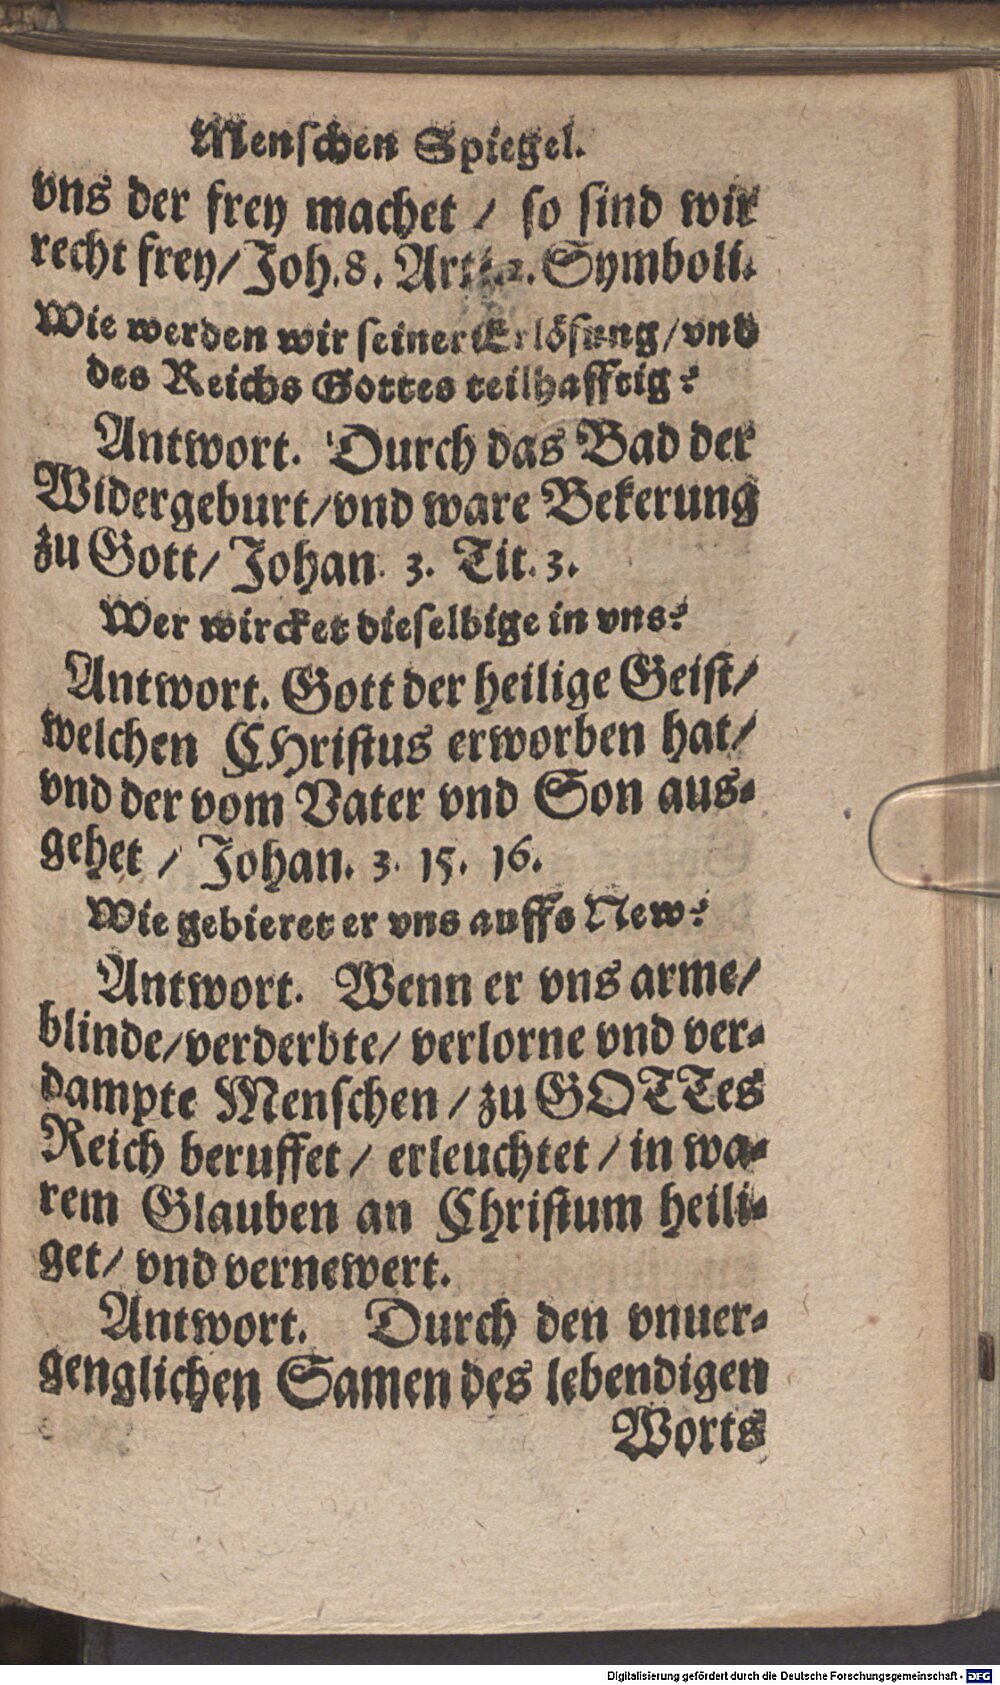 Menſchen Spiegel.
vns der frey machet / ſo ſind wir
recht frey/ Joh. 8. Symboli.
Wie werden wir ſeiner Erlöſung/ vnd
des Reichs Gottes teilhafftig?
Antwort. Durch das Bad der
Widergeburt/ vnd ware Bekerung
zu Gott/ Johan. 3. Tit. 3.
Wer wircket dieſelbige in vns?
Antwort. Gott der heilige Geiſt/
welchen CHriſtus erworben hat/
vnd der vom Vater vnd Son aus⸗
gehet / Johan. 3. 15. 16.
Wie gebieret er vns auffs New?
Antwort. Wenn er vns arme/
blinde/ verderbte/ verlorne vnd ver⸗
dampte Menſchen / zu GOTTes
Reich beruffet / erleuchtet / in wa⸗
rem Glauben an Chriſtum heili⸗
get/ vnd vernewert.
Antwort. Durch den vnuer⸗
genglichen Samen des lebendigen
Worts
Digitalisierung gefördert durch die Deutsche Forschungsgemeinschaft - DFG